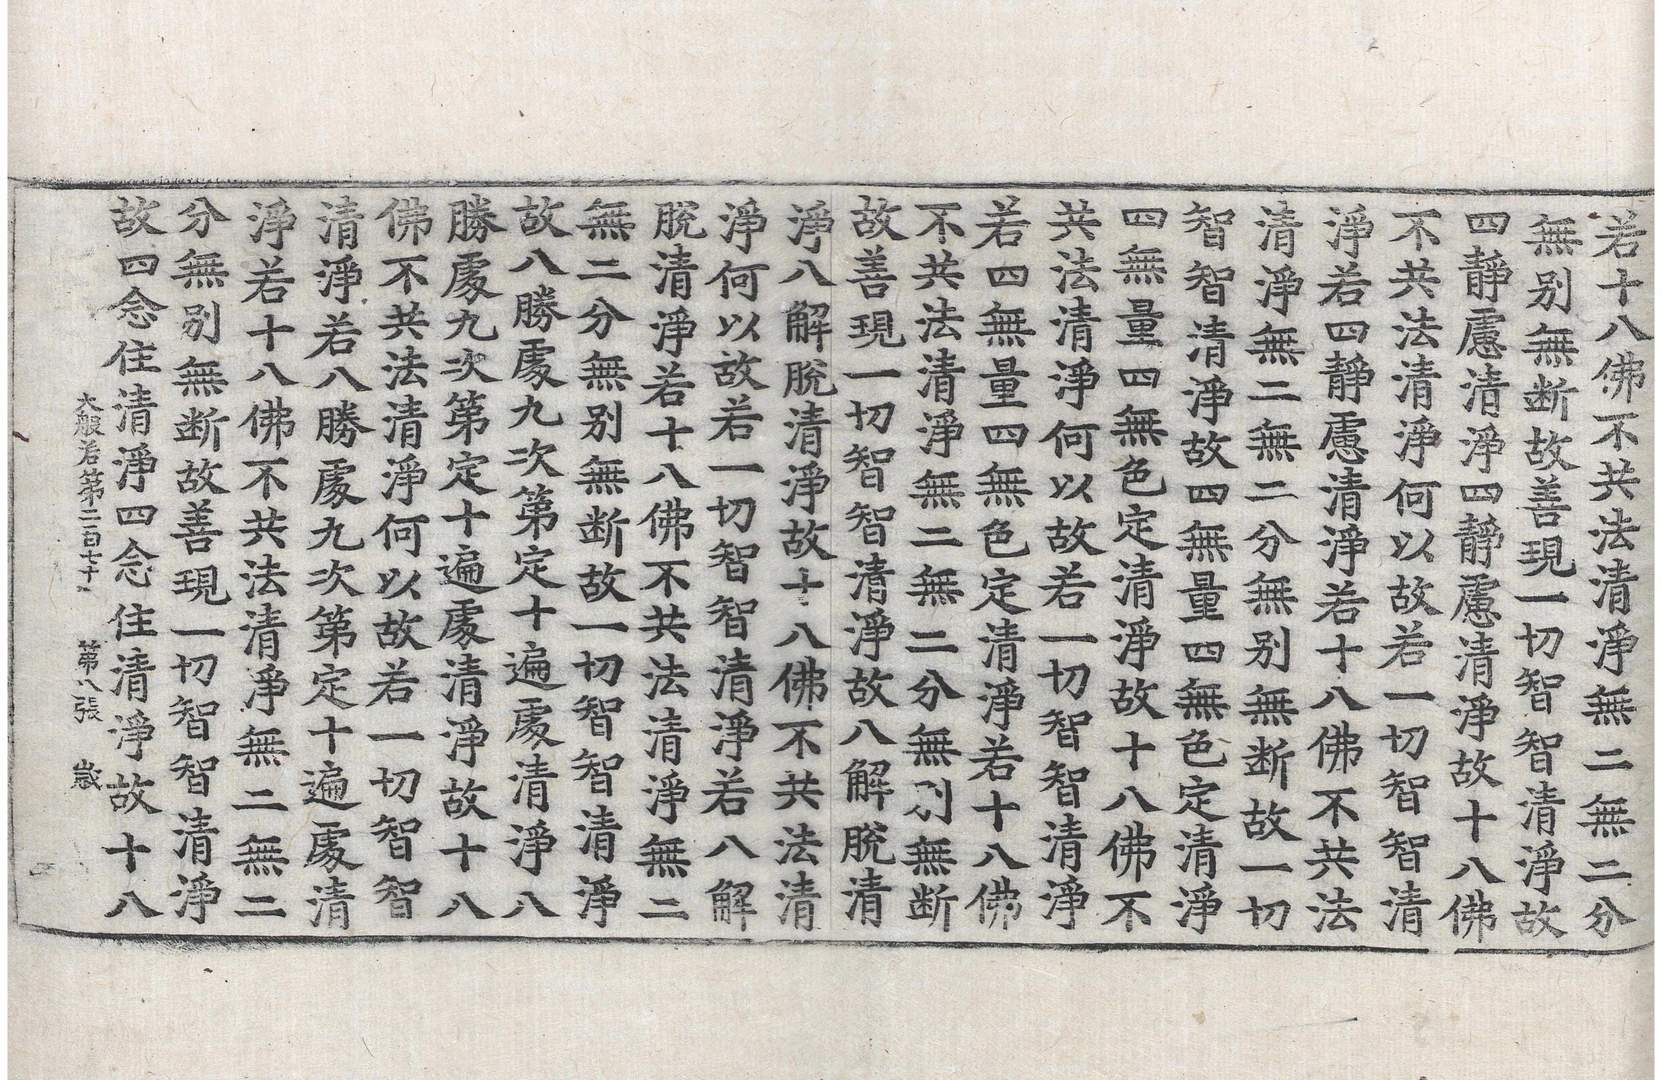 若十八佛不共法清淨無二無二分
無别無断故善現一切智智清淨故
四靜慮清淨四靜慮清淨故十八佛
不共法清淨何以故若一切智智清
淨若四靜慮清淨若十八佛不共法
清淨無二無二分無别無断故一切
智智清淨故四無量四無色定清淨
四無量四無色定清淨故十八佛不
共法清淨何以故若一切智智清淨
若四無量四無色定清淨若十八佛
不共法清淨無二無二分無别無断
故善現一切智智清淨故八解脫清
淨八解脫清淨故十八佛不共法清
淨何以故若一切智智清淨若八解
脫清淨若十八佛不共法清淨無二
無二分無别無断故一切智智清淨
故八勝處九次第定十遍處清淨八
勝處九次第定十遍處清淨故十八
佛不共法清淨何以故若一切智智
清淨若八勝處九次第定十遍處清
淨若十八佛不共法清淨無二無二
分無别無断故善現一切智智清淨
故四念住清淨四念住清淨故十八
大般若第二百七十一 第八張 歲